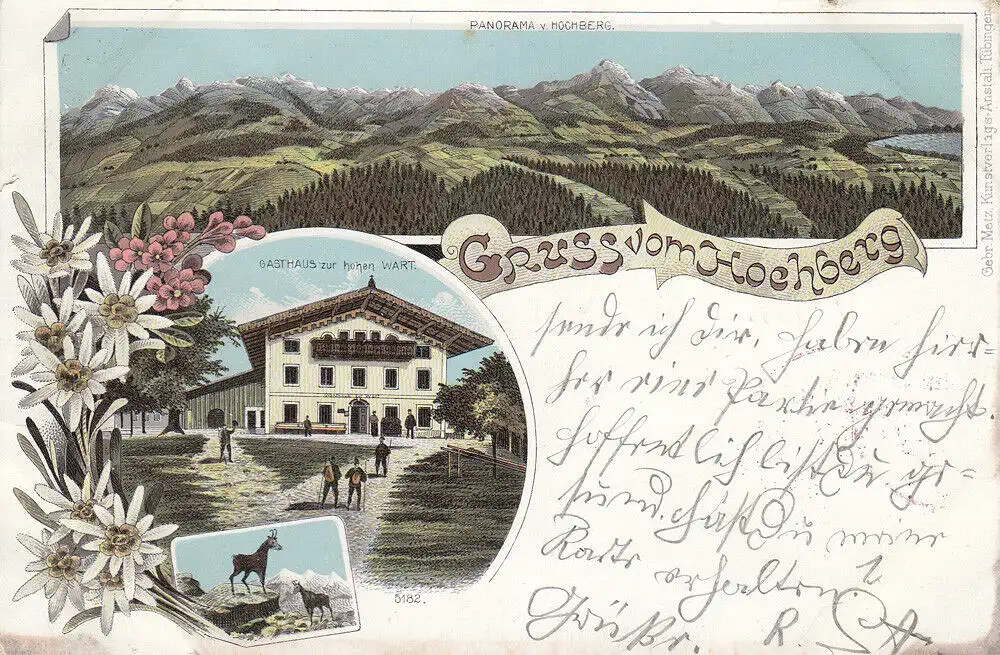 PANORAMA v. HOCHBERG.
Gruss vom Hochberg
Gebr. Metz, Kunstverlags-Anstalt, Tübingen
GASTHAUS zur hohen WART.
5182.
sende ich dir, haben hier-
her eine Partie gemacht.
Hoffentlich bist du ge-
sund, hast du meine
Karte erhalten?
Grüße. R.